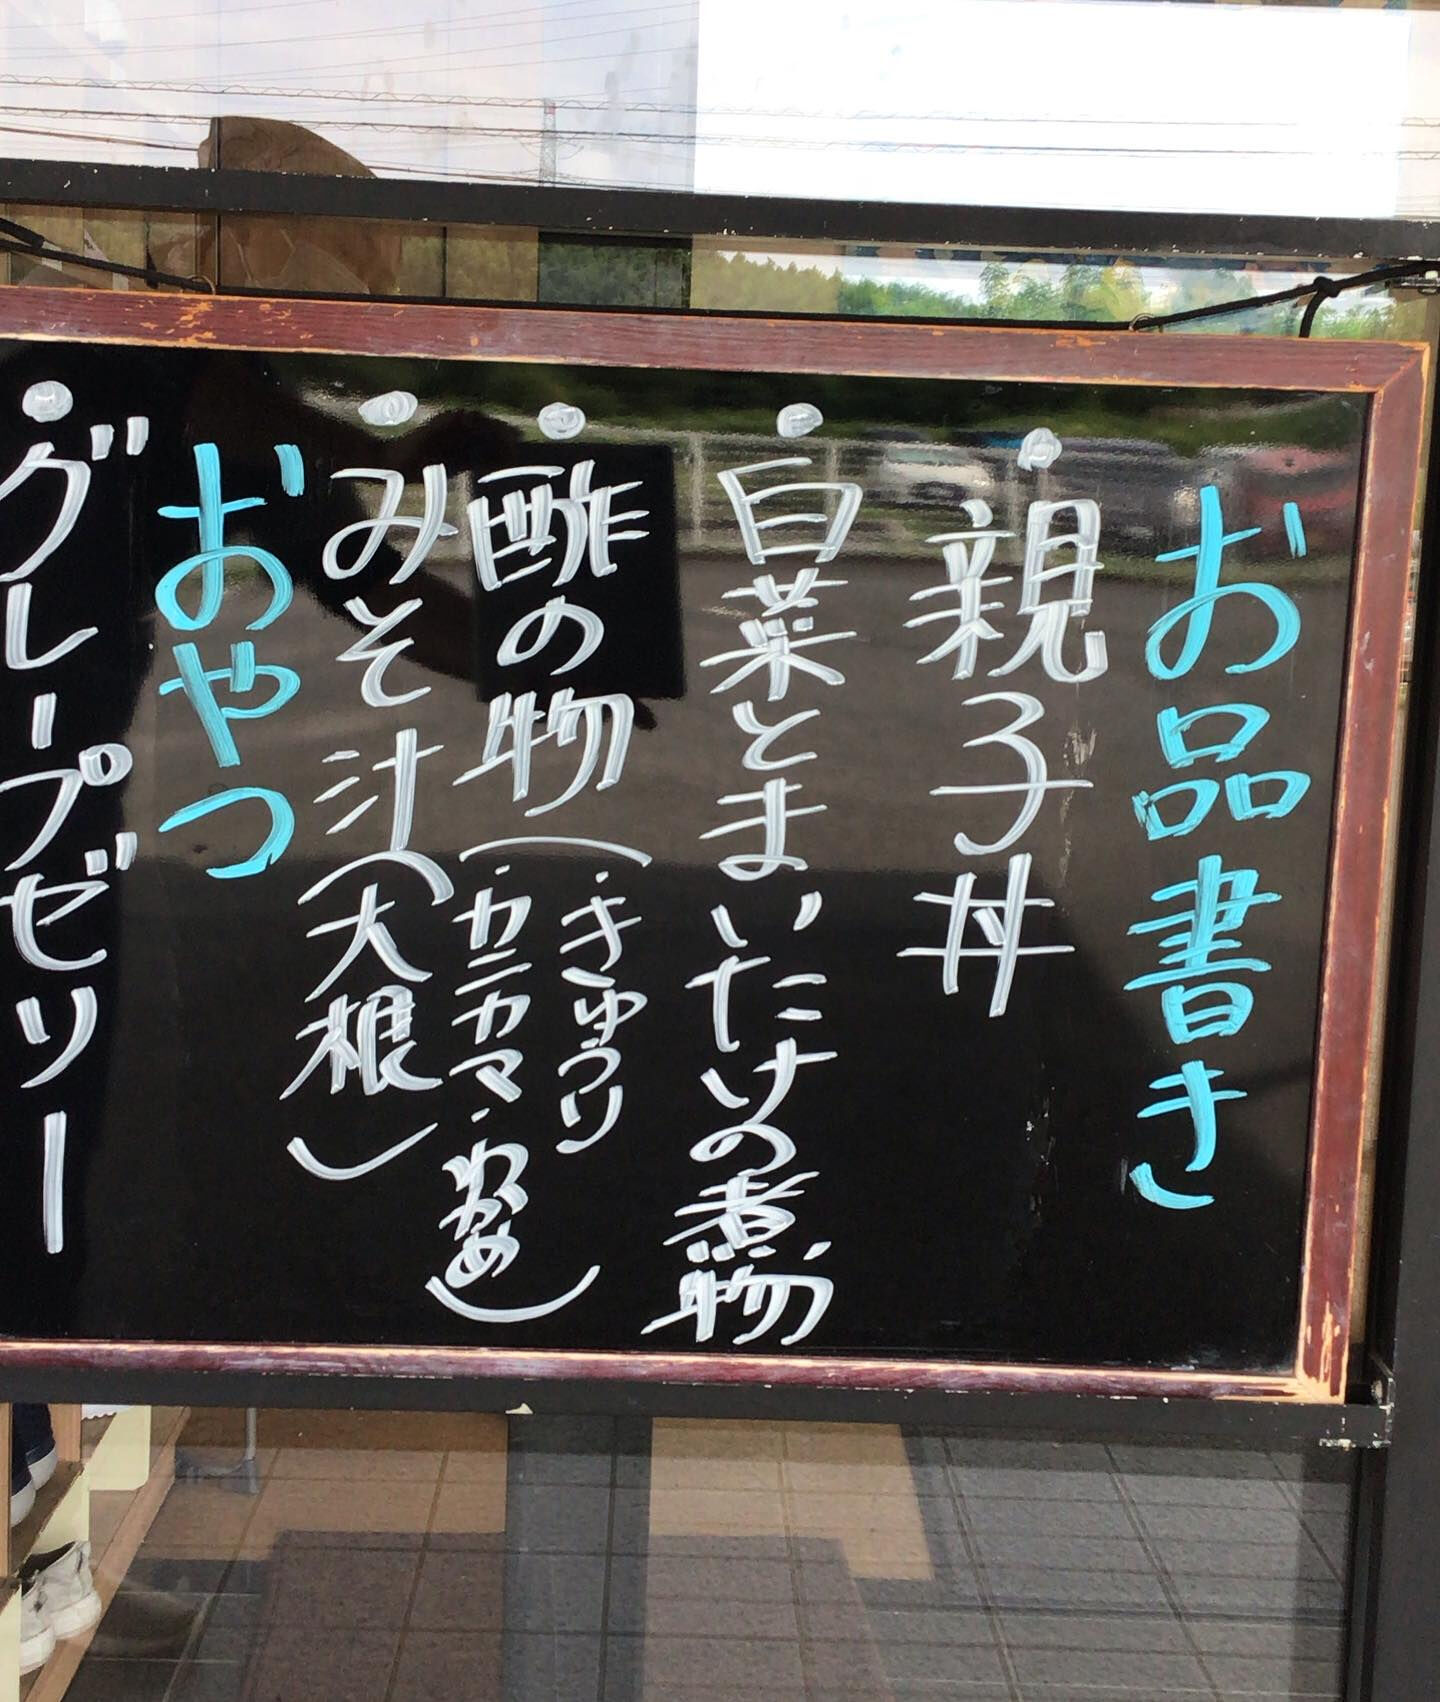 お品書き
・親子丼
・白菜とまいたけの煮物
・酢の物(・きゅうり
・カニカマ・わかめ)
・みそ汁(大根)
おやつ
・グレープゼリー